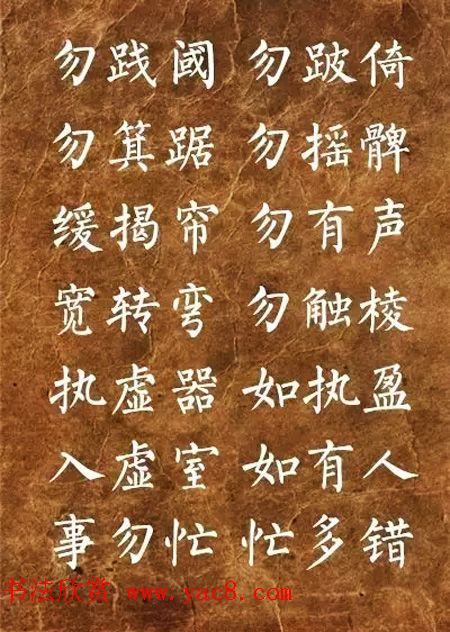 勿践阈 勿跛倚
勿箕踞 勿摇髀
缓揭帘 勿有声
宽转弯 勿触棱
执虚器 如执盈
入虚室 如有人
事勿忙 忙多错
书法欣赏 www.yac8.com